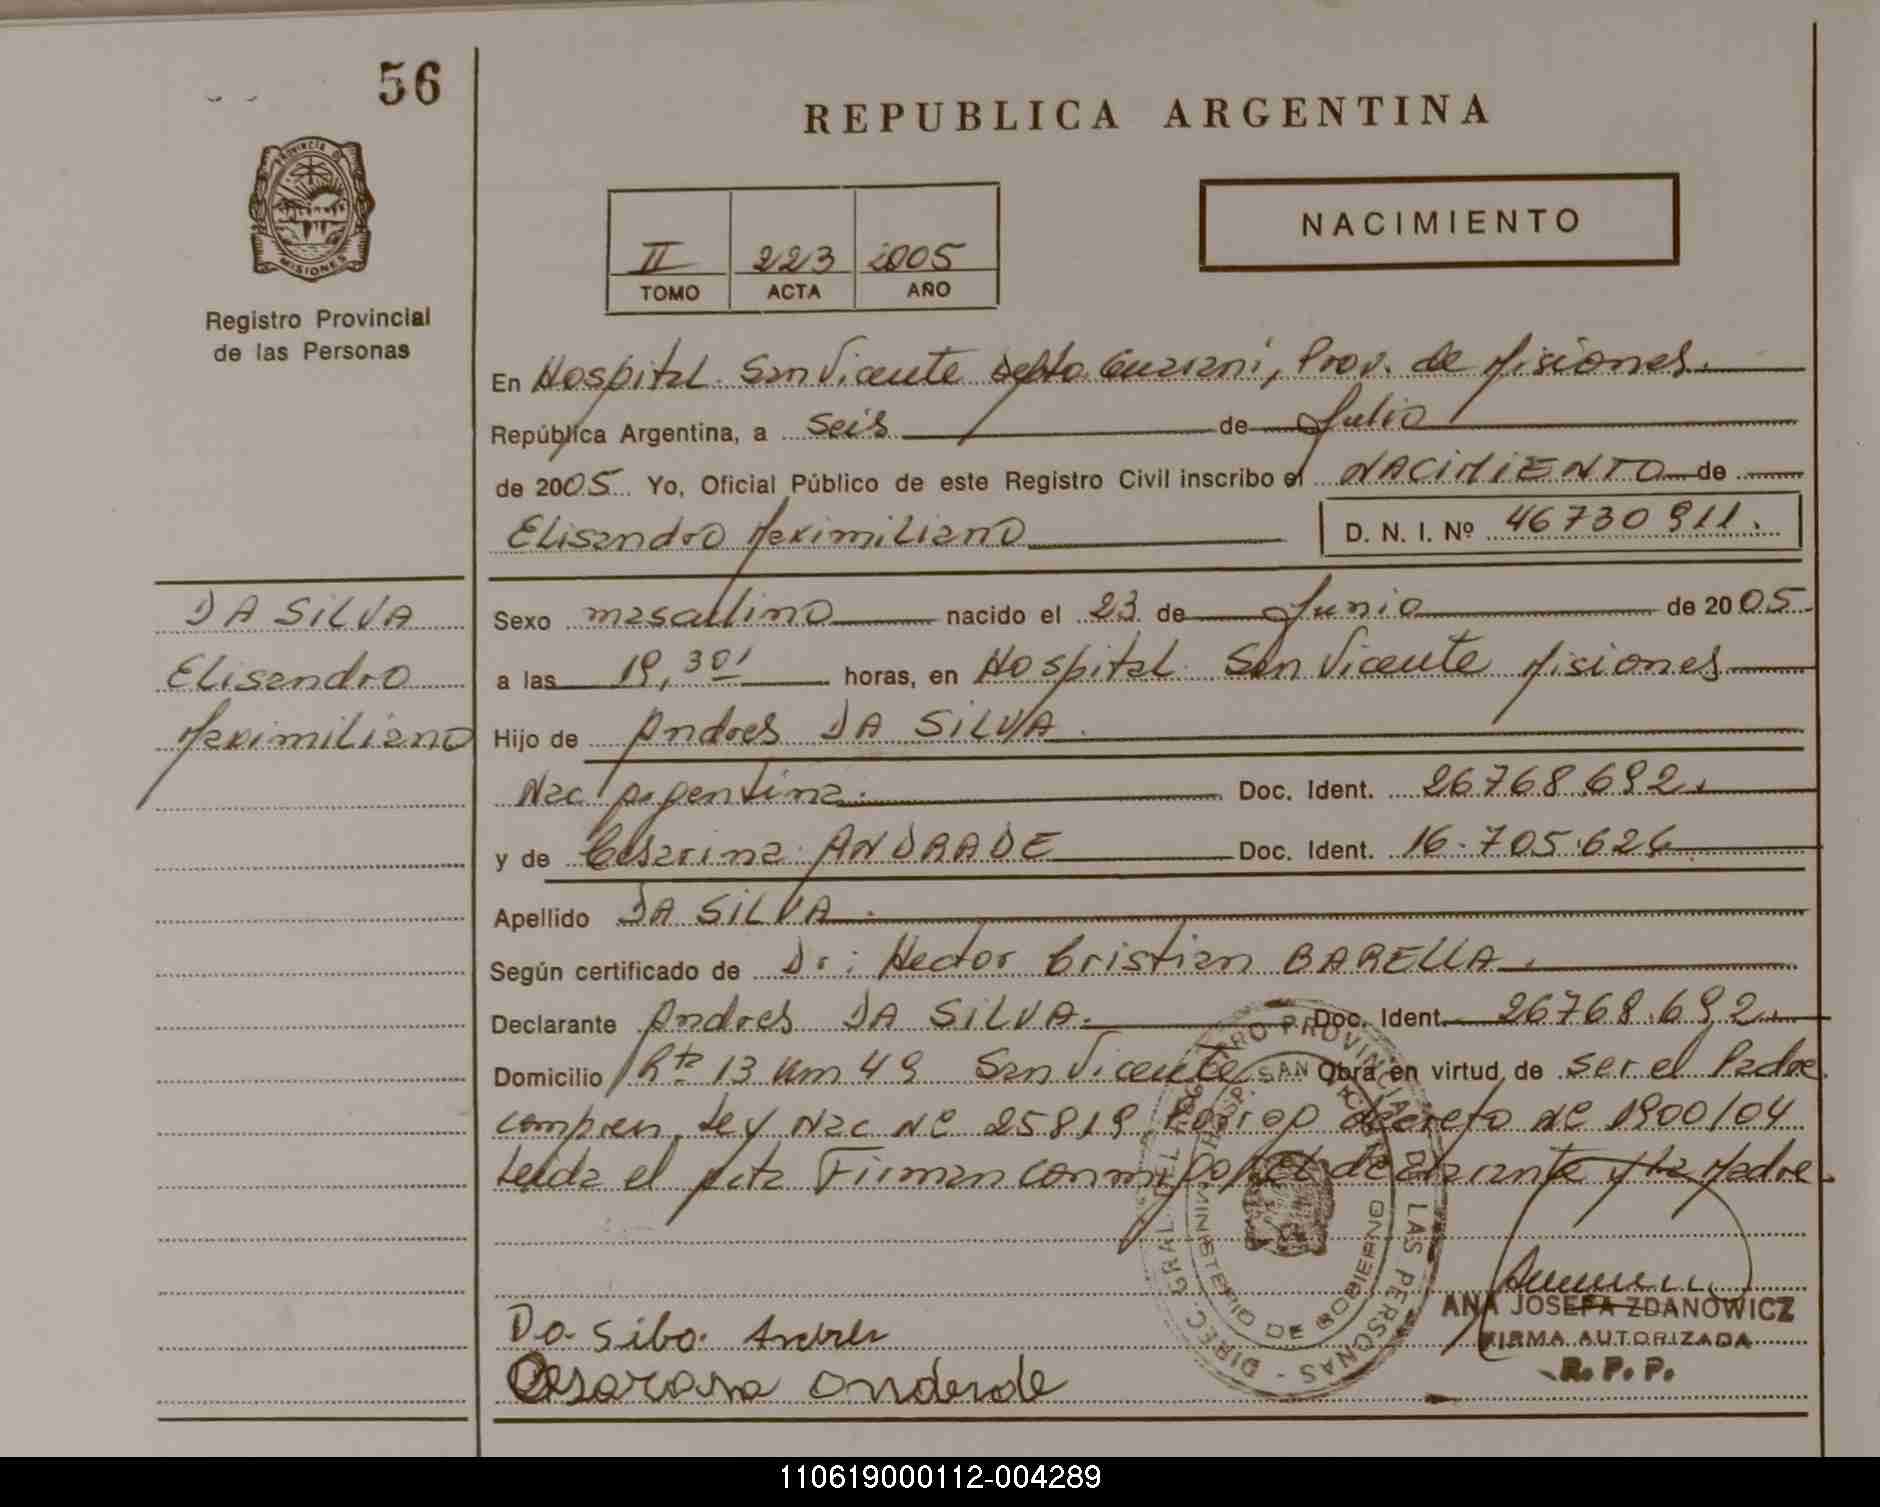 56
REPUBLICA ARGENTINA
PROVINCIA DE
MISIONES
Registro Provincial
de las Personas
NACIMIENTO
II 223 2005
TOMO ACTA AÑO
En Hospital San Vicente Depto Guarani, Prov. de Misiones.
República Argentina, a seis de Julio
de 2005 Yo, Oficial Público de este Registro Civil inscribo el NACIMIENTO de
Elisandro Maximiliano D. N. I. Nº 46730911.
DA SILVA
Elisandro
Maximiliano
Sexo masculino nacido el 23 de Junio de 2005.
a las 19,30' horas, en Hospital San Vicente Misiones
Hijo de Andres DA SILVA.
Nac Argentina. Doc. Ident. 26768.692.
y de Cesarina ANDRADE Doc. Ident. 16.705.626
Apellido DA SILVA.
Según certificado de Dr: Hector Cristian BARELLA.
Declarante Andres DA SILVA. Doc. Ident. 26768.692.
Domicilio Rta 13 Km 49 San Vicente Obra en virtud de ser el Padre
compren Ley Nac Nº 25819 decreto Nº 1900/04
Leida el Acta Firman conmigo el declarante y la Madre.
DIREC. GRAL. DEL REGISTRO PROVINCIAL DE LAS PERSONAS
MINISTERIO DE GOBIERNO
HOSP. SAN VICENTE
Da Silba Andres
Cesarina Andrade
ANA JOSEFA ZDANOWICZ
FIRMA AUTORIZADA
R. P. P.
110619000112-004289